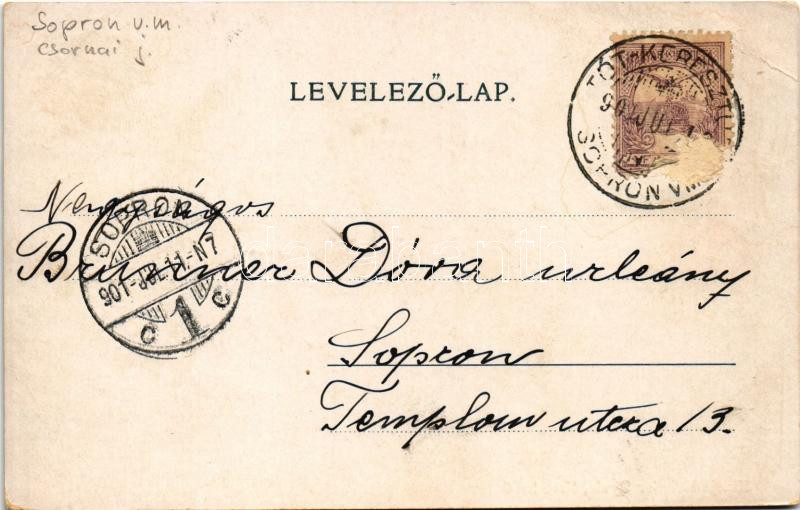 Sopron v.m.
Csornai j.
LEVELEZŐ-LAP.
TÓT-KERESZTU
SOPRON VM.
SOPRON
901 JUL 11-N7
C 1 C
Nagyságos
Brunner Dóra urleány
Sopron
Templom utcza 13.
darabanth